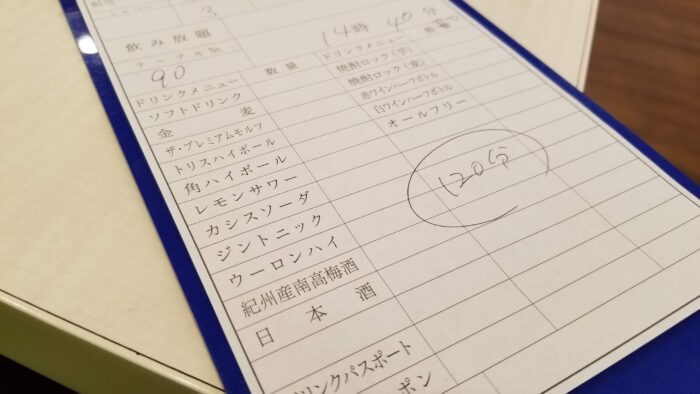 担当
3
飲み放題
14時 40分
テーブルNo.
90
ドリンクメニュー 数量 ドリンクメニュー 数量
ソフトドリンク 焼酎ロック(芋)
金麦 焼酎ロック(麦)
ザ・プレミアムモルツ 赤ワインハーフボトル
トリスハイボール 白ワインハーフボトル
角ハイボール オールフリー
レモンサワー
カシスソーダ
120分
ジントニック
ウーロンハイ
紀州産南高梅酒
日本酒
リンクパスポート
ポン